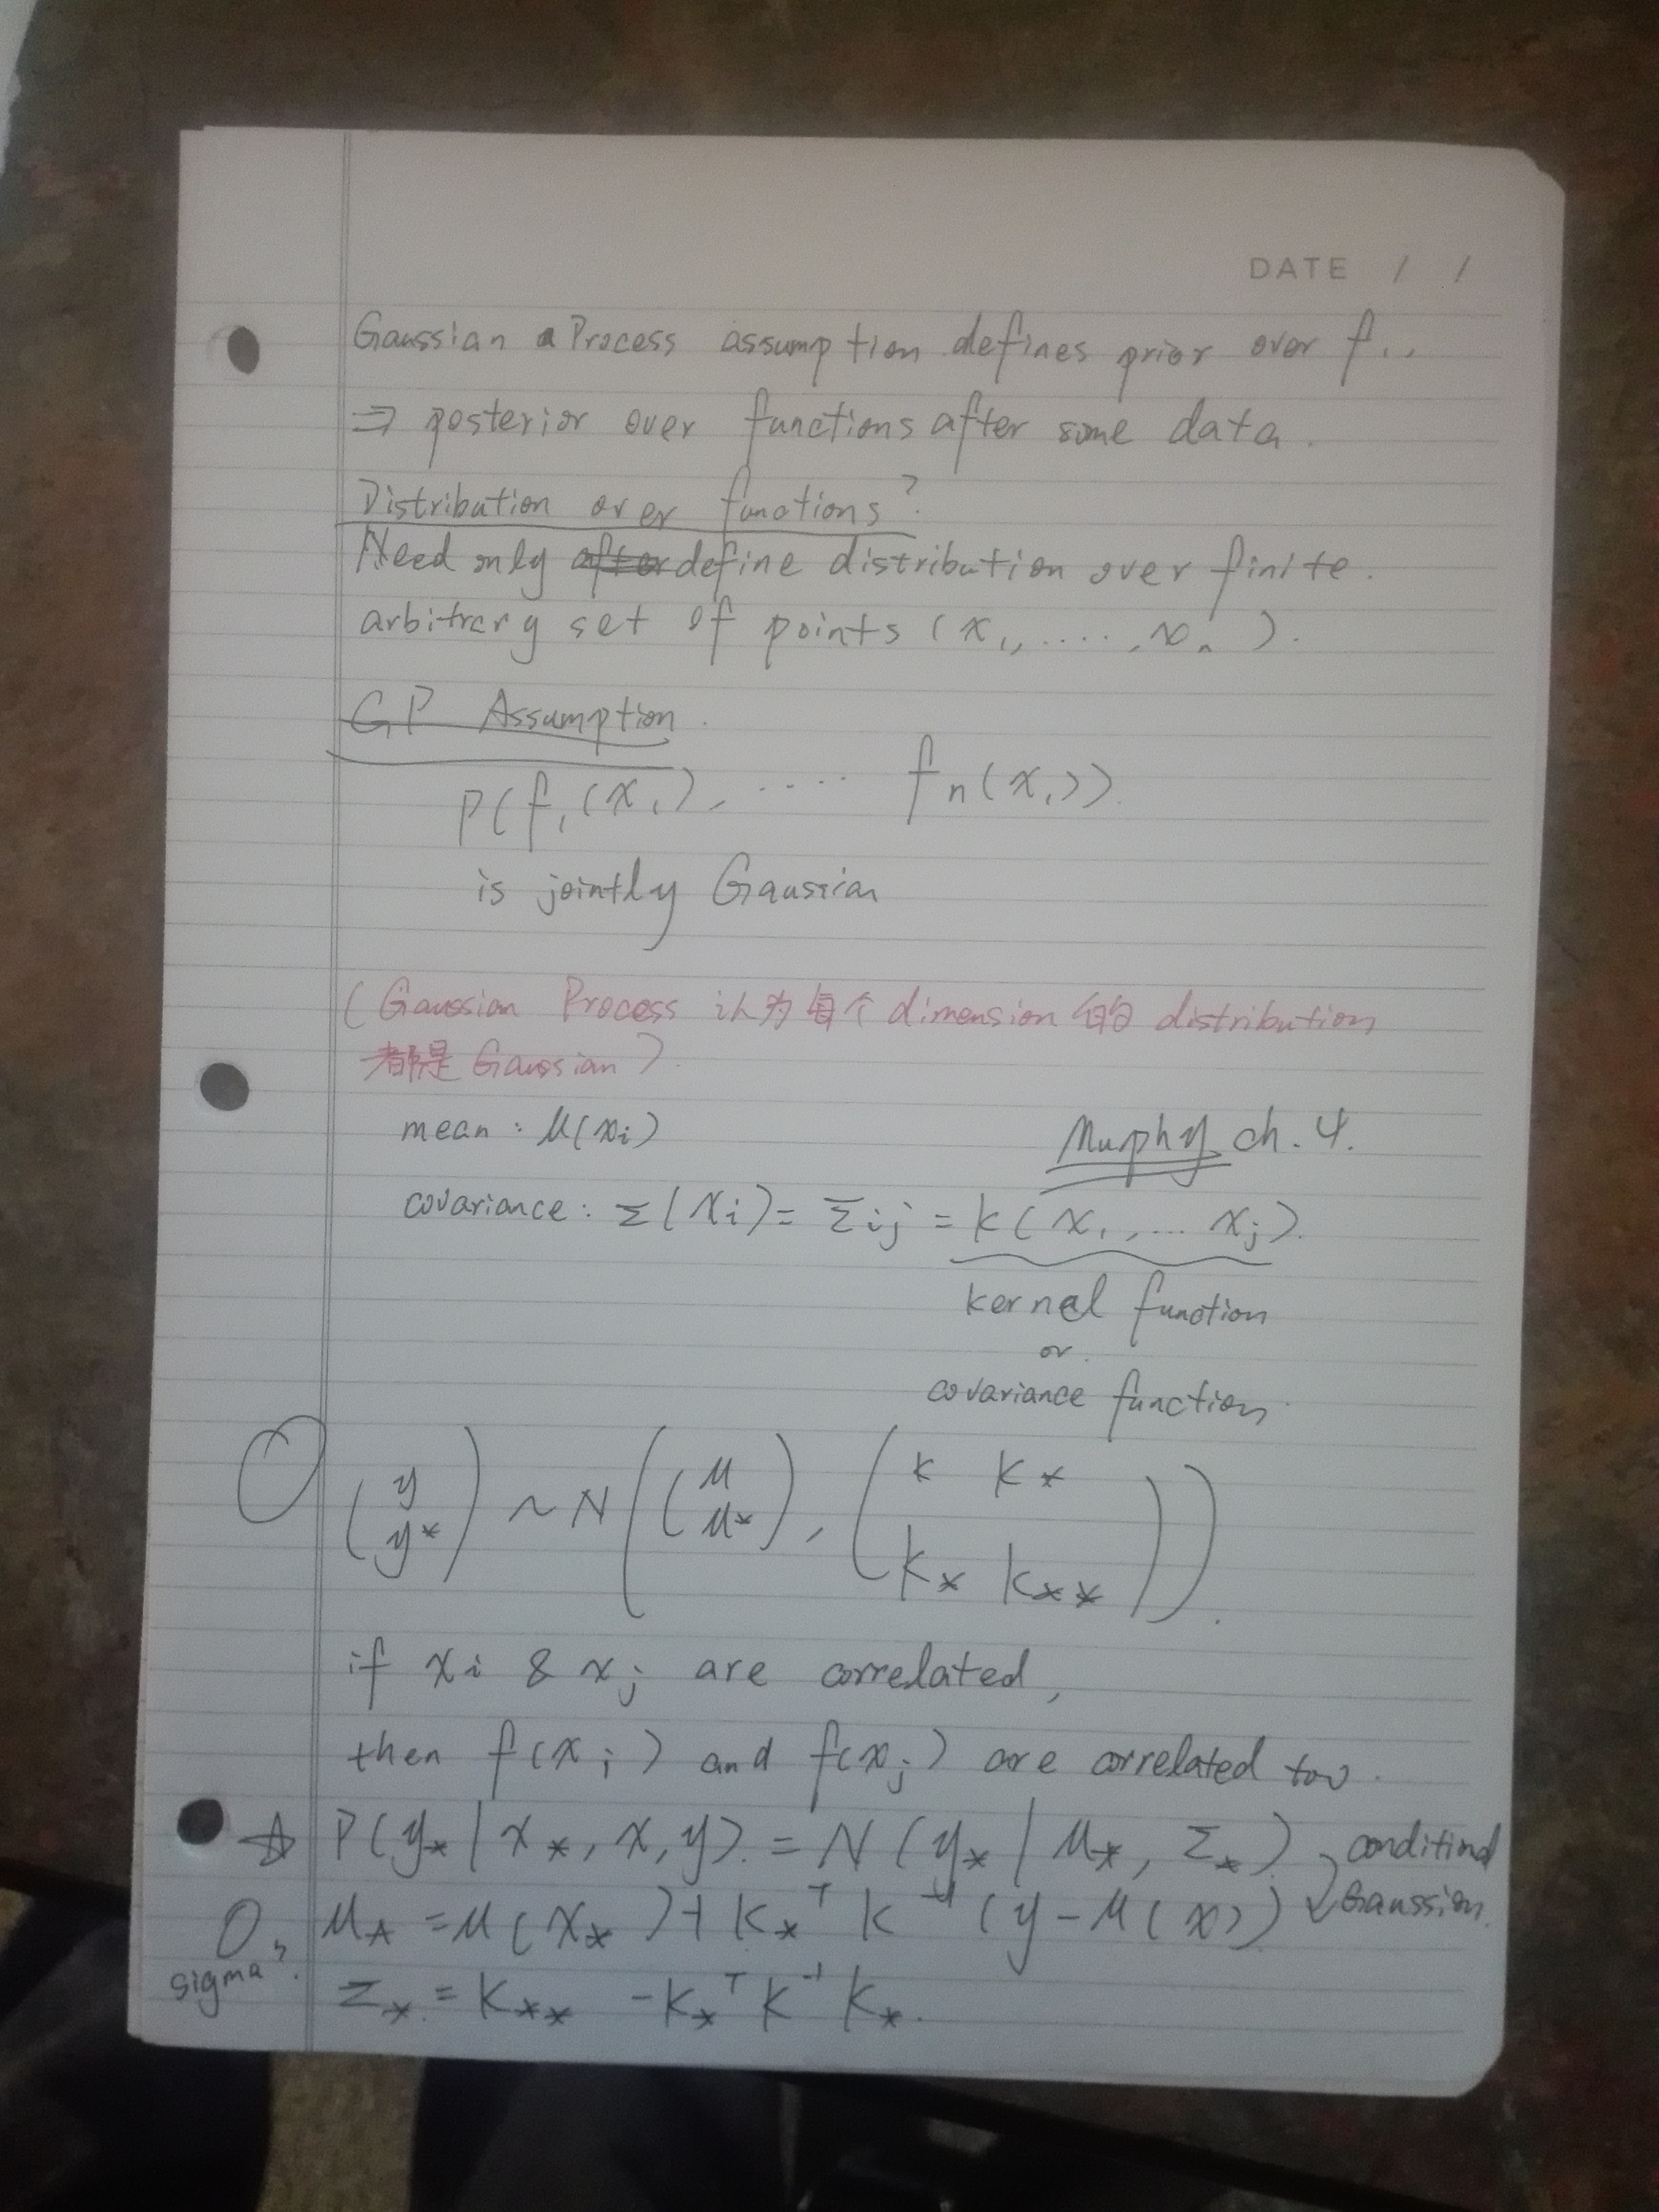 DATE / /
Gaussian Process assumption defines prior over f..
⇒ posterior over functions after some data.
Distribution over functions?
Need only after define distribution over finite.
arbitrary set of points (x₁, ...., xₙ).
GP Assumption.
P(f₁(x₁), .... fn(x₁)).
is jointly Gaussian
(Gaussian Process 认为每个 dimension 的 distribution
都是 Gaussian).
mean : μ(xi)
Murphy ch. 4.
covariance : Σ(xi) = Σij = k(x₁, ... xj).
kernel function
or.
covariance function.
(y y*) ~ N((μ μ*), (k k* k* k**)).
if xi & xj are correlated,
then f(xi) and f(xj) are correlated too.
☆ P(y* | x*, x, y). = N(y* | μ*, Σ*) conditinal
Gaussian.
μ* = μ(x*) + k*ᵀ k⁻¹ (y - μ(x))
sigma?
Σ* = k** - k*ᵀ k⁻¹ k*.